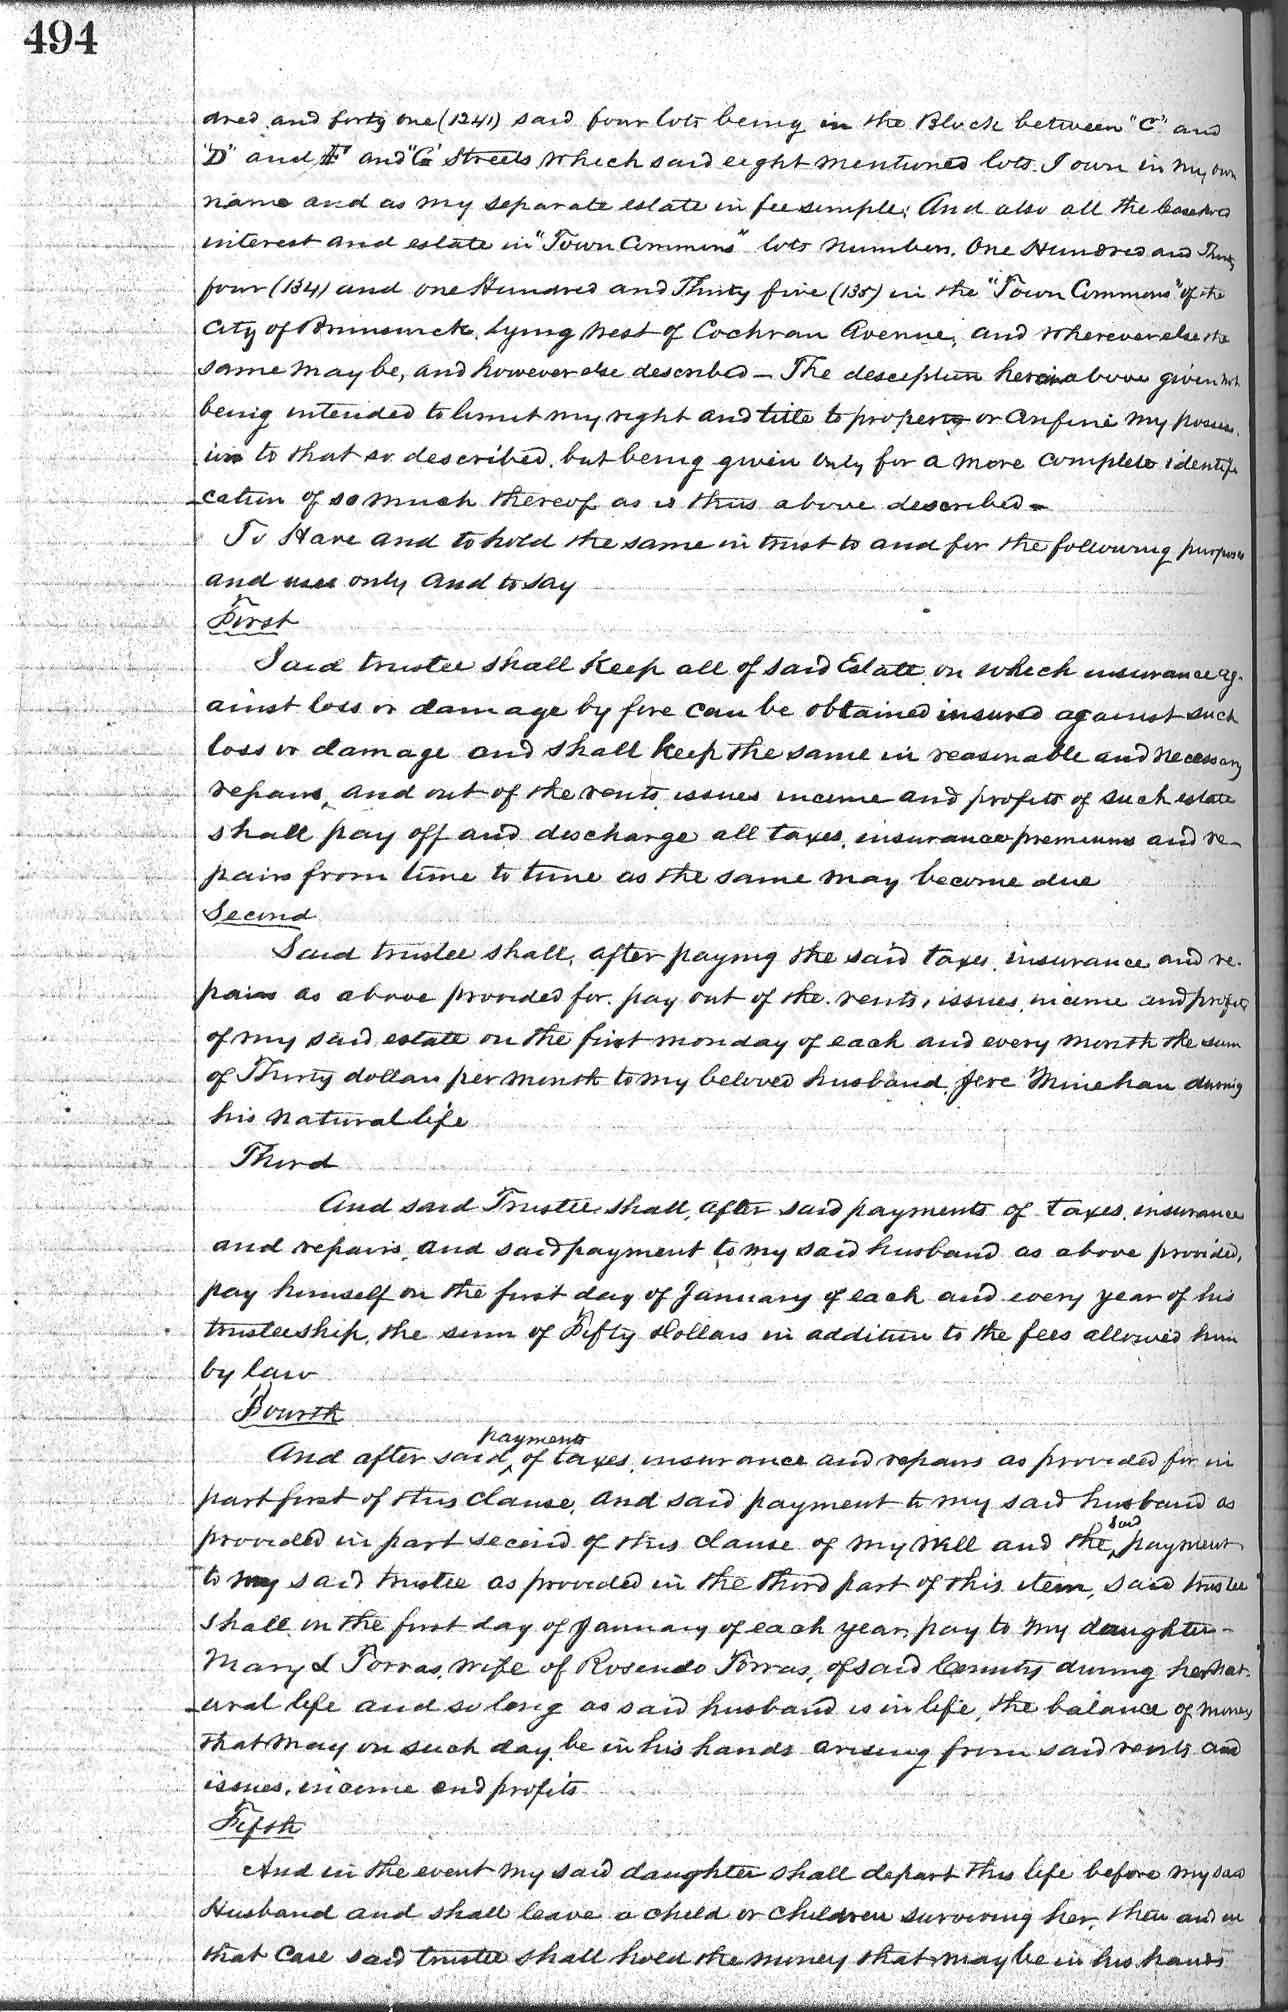 494
dred and forty one (1241) said four lots being in the Block between "C" and
"D" and "F" and "G" Streets which said eight mentioned lots I own in my own
name and as my separate estate in fee simple; And also all the leasehold
interest and estate in "Town Commons" lots numbers, One Hundred and Thirty
four (134) and one Hundred and Thirty five (135) in the "Town Commons" of the
City of Brunswick, lying West of Cochran Avenue, and wherever else the
same may be, and however else described – The description hereinabove given not
being intended to limit my right and title to property or confine my possess
ion to that so described, but being given only for a more complete identifi
-cation of so much thereof as is thus above described –
To Have and to hold the same in trust to and for the following purposes
and uses only and to say
First
Said trustee shall keep all of said Estate on which insurance ag-
ainst loss or damage by fire can be obtained insured against such
loss or damage and shall keep the same in reasonable and necessary
repairs, and out of the rents issues income and profits of such estate
shall pay off and discharge all taxes, insurance premiums and re-
pairs from time to time as the same may become due
Second
Said trustee shall, after paying the said taxes, insurance and re-
pairs as above provided for, pay out of the rents, issues, income and profits
of my said estate on the first monday of each and every month the sum
of Thirty dollars per month to my beloved husband, Jere Minehan during
his natural life
Third
And said Trustee shall, after said payments of taxes, insurance
and repairs, and said payment to my said husband as above provided,
pay himself on the first day of January of each and every year of his
trusteeship, the sum of Fifty Dollars in addition to the fees allowed him
by law
Fourth
And after said payments of taxes, insurance and repairs as provided for in
part first of this clause, and said payment to my said husband as
provided in part second of this clause of my will and the said payment
to my said trustee as provided in the third part of this item, said trustee
shall on the first day of January of each year, pay to my daughter –
Mary L Torras, wife of Rosendo Torras, of said County during her nat-
-ural life and so long as said husband is in life, the balance of money
that may on such day be in his hands arising from said rents and
issues, income and profits
Fifth
And in the event my said daughter shall depart this life before my said
Husband and shall leave a child or children surviving her, then and in
that case said trustee shall hold the money that may be in his hands